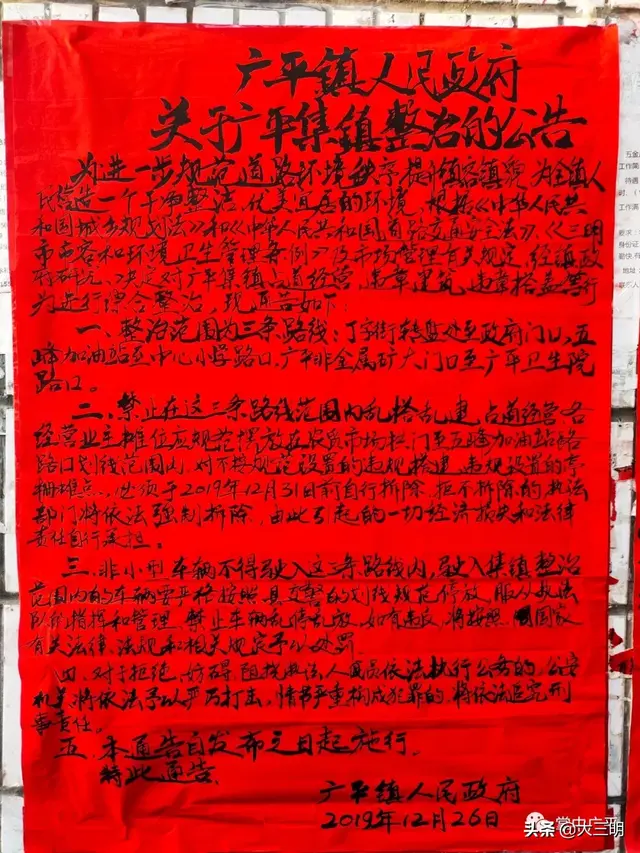 广平镇人民政府
关于广平集镇整治的公告
为进一步规范道路环境秩序提升镇容镇貌,为全镇人
民营造一个干净整洁、优美宜居的环境,根据《中华人民共
和国城乡规划法》和《中华人民共和国道路交通安全法》、《三明
市市容和环境卫生管理条例》及市场管理有关规定,经镇政
府研究、决定对广平集镇占道经营、违章建筑、违章搭盖等行
为进行综合整治,现通告如下:
一、整治范围为三条路线:丁字街转盘处至政府门口,五
峰加油站至中心小学路口,广平非金属矿大门口至广平卫生院
路口。
二、禁止在这三条路线范围内乱搭乱建,占道经营,各
经营业主摊位应规范摆放在农贸市场松门至五峰加油站路
路口划线范围内,对不按规范设置的违规搭建、违规设置的
棚摊点,必须于2019年12月31日前自行拆除,拒不拆除的执法
部门将依法强制拆除,由此引起的一切经济损失和法律
责任自行承担。
三、非小型车辆不得驶入这三条路线内,驶入集镇整治
范围内的车辆要严格按照县交警的划线规范停放,服从执法
队的指挥和管理,禁止车辆乱停乱放,如有违反,将按照国家
有关法律、法规和相关规定予以处罚。
四、对于拒绝、妨碍、阻挠执法人员依法执行公务的,公安
机关将依法予以严厉打击,情节严重构成犯罪的,将依法追究刑
事责任。
五、本通告自发布之日起施行。
特此通告。
广平镇人民政府
2019年12月26日
掌中广平
头条@大三明